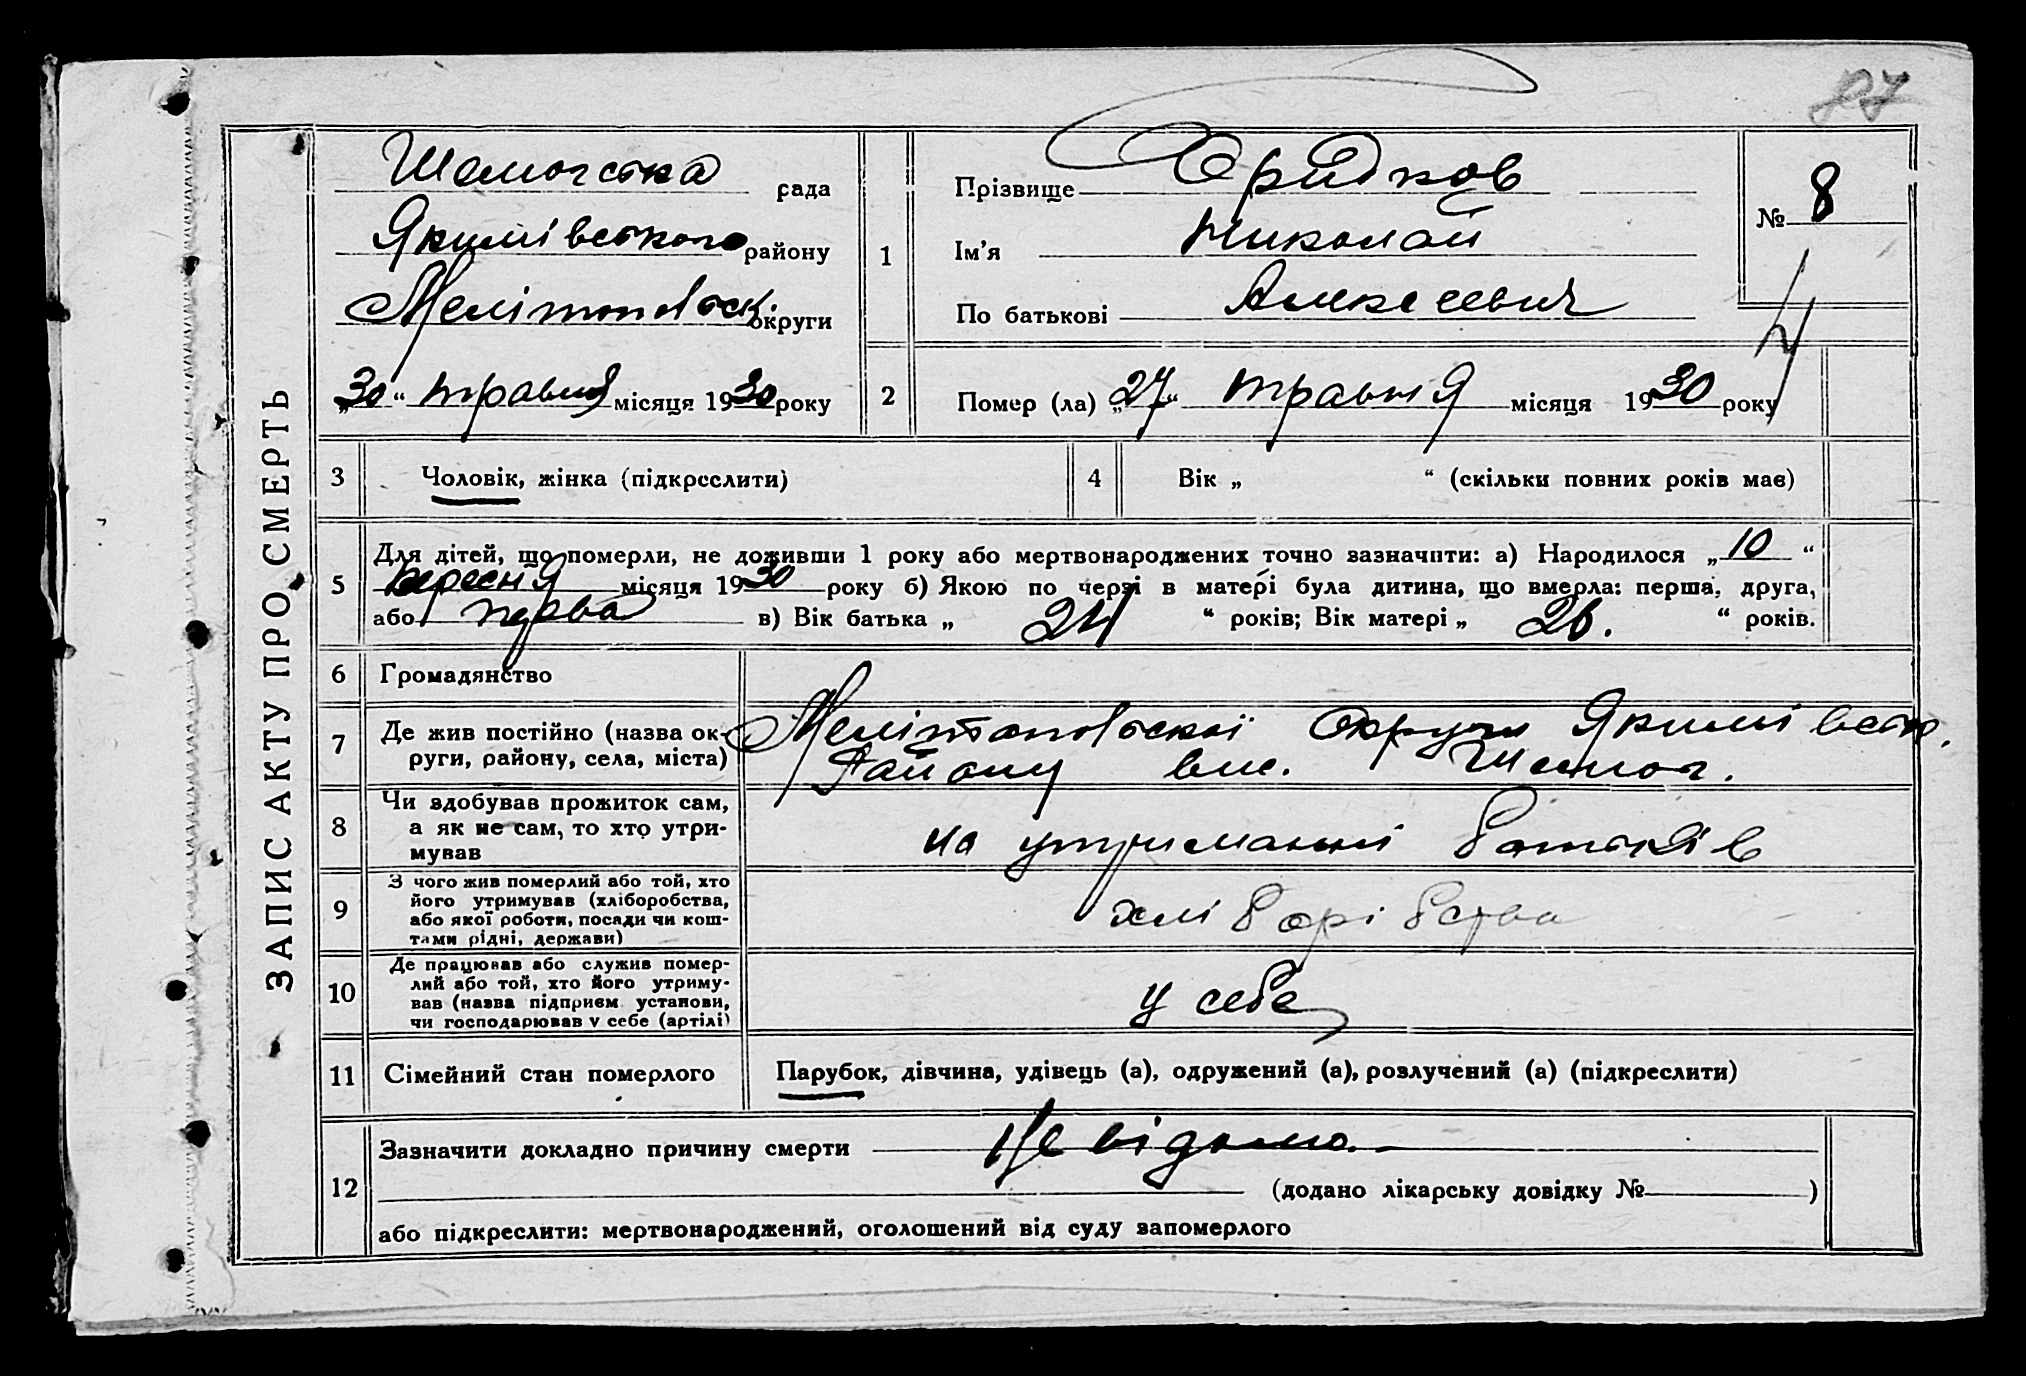 87
ЗАПИС АКТУ ПРО СМЕРТЬ
рада
Якимівського району
Мелітопольськ. округи
„30“ травня місяця 1930 року
1
Прізвище
Ім'я Николай
По батькові Алексеевич
№ 8
2
Помер (ла) „27“ травня місяця 1930 року
3
Чоловік, жінка (підкреслити)
4
Вік „ “ (скільки повних років має)
5
Для дітей, що померли, не доживши 1 року або мертвонароджених точно зазначити: а) Народилося „10“
вересня місяця 1930 року б) Якою по черзі в матері була дитина, що вмерла: перша, друга,
або перва в) Вік батька „24“ років; Вік матері „26.“ років.
6
Громадянство
7
Де жив постійно (назва ок-
руги, району, села, міста)
Мелітопольскої Округи Якимівськ.
Району
8
Чи здобував прожиток сам,
а як не сам, то хто утри-
мував
на утриманні батьків
9
З чого жив померлий або той, хто
його утримував (хліборобства,
або якої роботи, посади чи кош-
тами рідні, держави)
хліборібства
10
Де працював або служив помер-
лий або той, хто його утриму-
вав (назва підприєм. установи,
чи господарював у себе (артілі)
у себе
11
Сімейний стан померлого
Парубок, дівчина, удівець (а), одружений (а), розлучений (а) (підкреслити)
12
Зазначити докладно причину смерти Не відомо.
(додано лікарську довідку № )
або підкреслити: мертвонароджений, оголошений від суду запомерлого